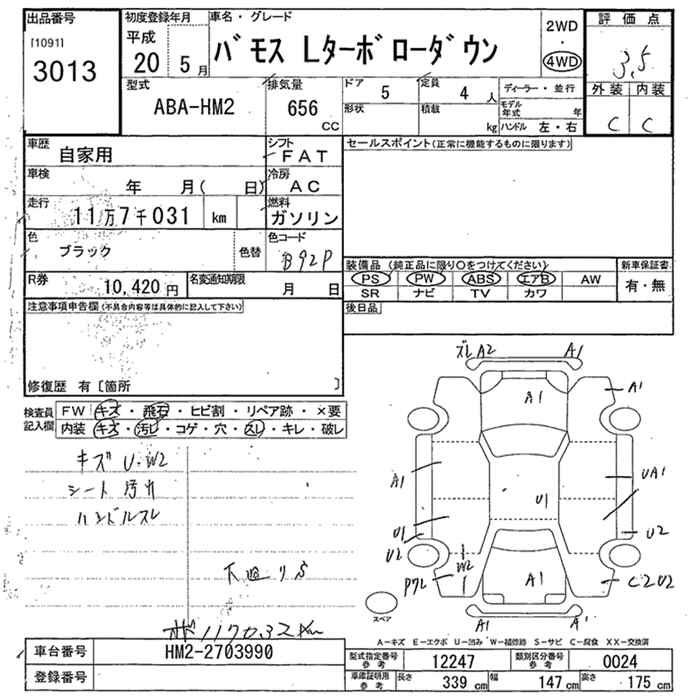 出品番号
[1091]
3013
初度登録年月
平成
20 5月
車名・グレード
バモス Lターボローダウン
2WD
・
4WD
評価点
3.5
外装 内装
C C
型式
ABA-HM2
排気量
656
CC
ドア 5
形状
定員 4 人
積載 kg
ディーラー・並行
モデル年式 年
ハンドル 左・右
車歴
自家用
シフト
FAT
車検
年 月( 日)
冷房
AC
走行
11万7千031 km
燃料
ガソリン
色
ブラック
色替
色コード
B92P
R券
10,420円
名変通知期限
月 日
セールスポイント(正常に機能するものに限ります)
装備品(純正品に限り○をつけてください)
PS PW ABS エアB AW
SR ナビ TV カワ
新車保証書
有・無
後日品
注意事項申告欄(不具合内容等は具体的に記入して下さい)
修復歴 有〔箇所 〕
検査員記入欄
FW キズ・飛石・ヒビ割・リペア跡・×要
内装 キズ・汚レ・コゲ・穴・スレ・キレ・破レ
キズ U・W2
シート汚れ
ハンドルスレ
下廻りS
ズレ A2 A1
A1 A1
A1 UA1
U1
U1 U2
U2 W2
アクレ A1 C2U2
A1 A1
スペア
A−キズ E−エクボ U−凹み W−補修跡 S−サビ C−腐食 XX−交換済
117032km
車台番号
HM2-2703990
登録番号
型式指定番号 参考
12247
類別区分番号 参考
0024
車庫証明用 参考
長さ 339 cm
幅 147 cm
高さ 175 cm